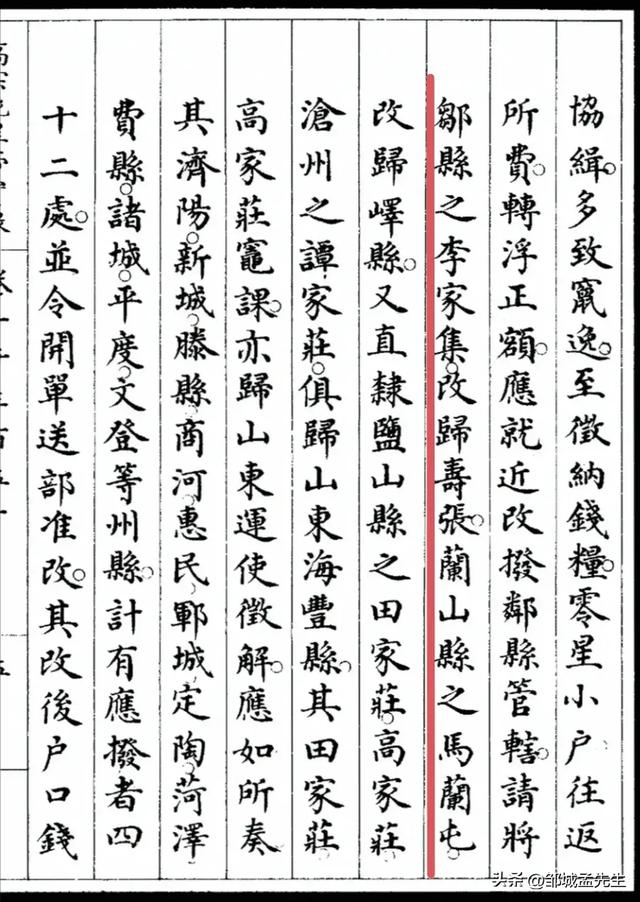 協緝。多致竄逸。至徵納錢糧。零星小户往返
所費。轉浮正額。應就近改撥鄰縣管轄。請將
鄒縣之李家集。改歸壽張。蘭山縣之馬蘭屯。
改歸嶧縣。又直隸鹽山縣之田家莊。高家莊。
滄州之譚家莊。俱歸山東海豐縣。其田家莊
高家莊竈課。亦歸山東運使徵解。應如所奏
其濟陽。新城。滕縣。商河。惠民。鄆城。定陶。菏澤
費縣。諸城。平度。文登等州縣。計有應撥者四
十二處。並令開單送部准改。其改後户口錢
头条 @邹城孟先生